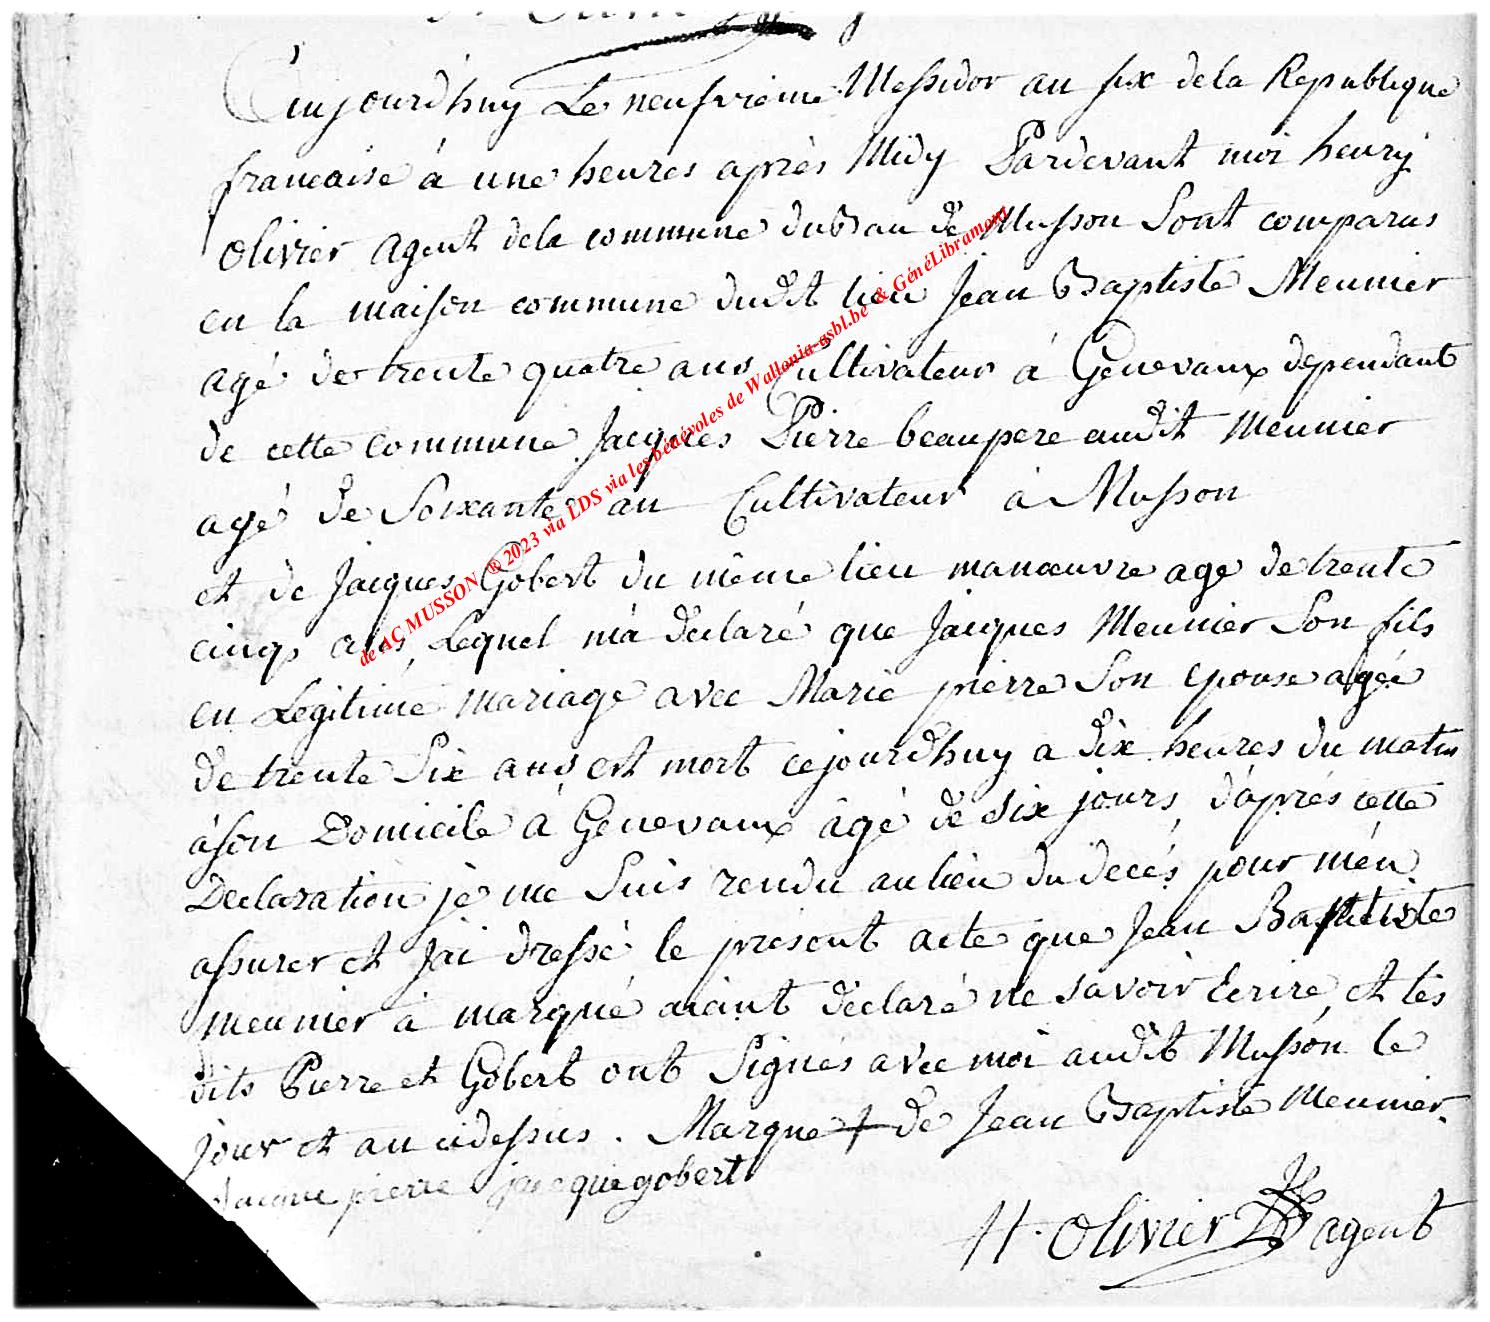 Aujourd'huy Le neufvieme Messidor an six de la Republique
francaise à une heures après Midy Pardevant moi henry
Olivier agent dela commune du Ban de Musson Sont comparus
en la maison commune dudit lieu Jean Baptiste Meunier
agé de trente quatre ans Cultivateur à Genevaux dependant
de cette commune Jacques Pierre beaupere audit Meunier
agé de Soixante an Cultivateur à Musson
et de Jacques Gobert du même lieu manœuvre agé de trente
cinq ans, Lequel m'a déclaré que Jacques Meunier Son fils
en Légitime mariage avec Marie pierre Son epouse agée
de trente Six ans est mort cejourd'huy a dix heures du matin
àson Domicile à Genevaux âgé de six jours, d'après cette
Declaration je me Suis rendu au lieu du decés pour m'én
assurer et j'ai dressé le présent acte que Jean Baptiste
Meunier à marqué aiant déclaré ne savoir Ecrire, et les
dits Pierre et Gobert ont Signés avec moi audit Musson le
jour et an cidessus. Marque + de Jean Baptiste Meunier.
Jacque pierre jacquegobert
H. Olivier agent
de AC MUSSON ® 2023 via LDS via les bénévoles de Wallonia-asbl.be & GénéLibramont